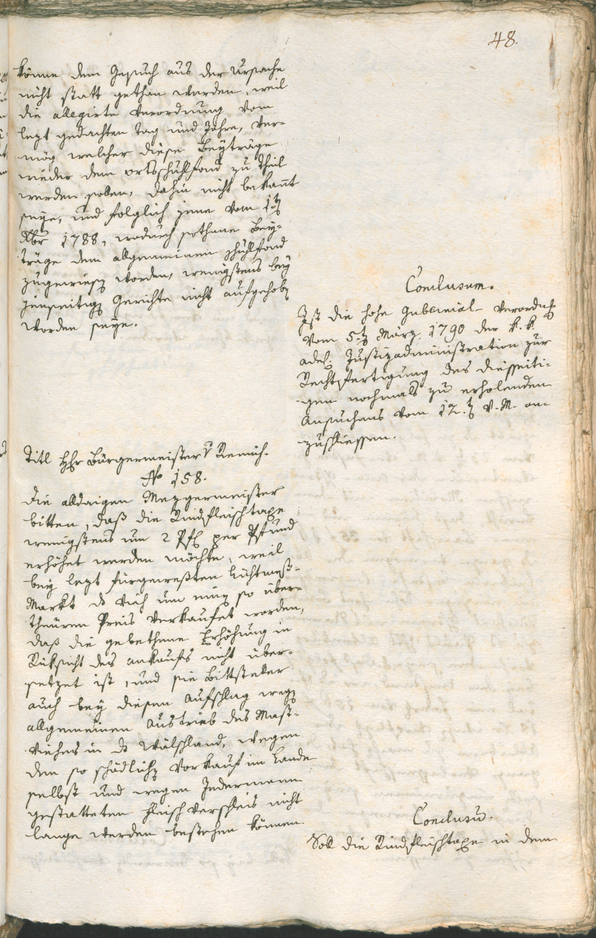 48.
könne dem Gesuch aus der Ursache
nicht statt gethan werden, weil
die allegirte Verordnung vom
lezt gedachten Tag und Jahre, ver-
mög welcher diese Beyträge
wieder dem Ortsschulfond zu theil
werden sollen, dahin nicht bekannt
seye, und folglich jene vom
1788, wodurch sothane Bey-
träge dem allgemeinen Schulfond
zugewiesen worden, wenigstens bey
jenseitigen Gerichte nicht aufgehoben
worden seye.
Conclusum.
Ist die hohe Gubernial-Verordnung
vom 5ten März 1790 der k. k.
adel. Justizadministration zur
Rechtfertigung des diesseiti-
gen nochmals zu erholenden
Ansuchens vom 12. v. M. an-
zuschliessen.
Titl Hr Bürgermeister v Remich.
No 158.
Die alldaigen Mezgermeister
bitten, daß die Rindfleischtaxe
wenigstens um 2 per Pfund
erhöhet werden möchte, weil
bey lezt fürgewesten Lichtmeß-
Markt das Vieh um einen so über-
theuren Preis verkaufet worden,
daß die gebethene Erhöhung in
Rüksicht des ankaufs nicht über-
sezet ist, und sie Bittsteller
auch bey diesen Aufschlag wegen
allgemeinen Austrieb des Mast-
viehes in das Wälschland, wegen
den so schädlichen Vorkauf im Lande
selbst und wegen Jedermann
gestatteten Fleischverschleis nicht
lange werden bestehen können.
Conclusum.
Soll die Rindfleischtaxe in dem